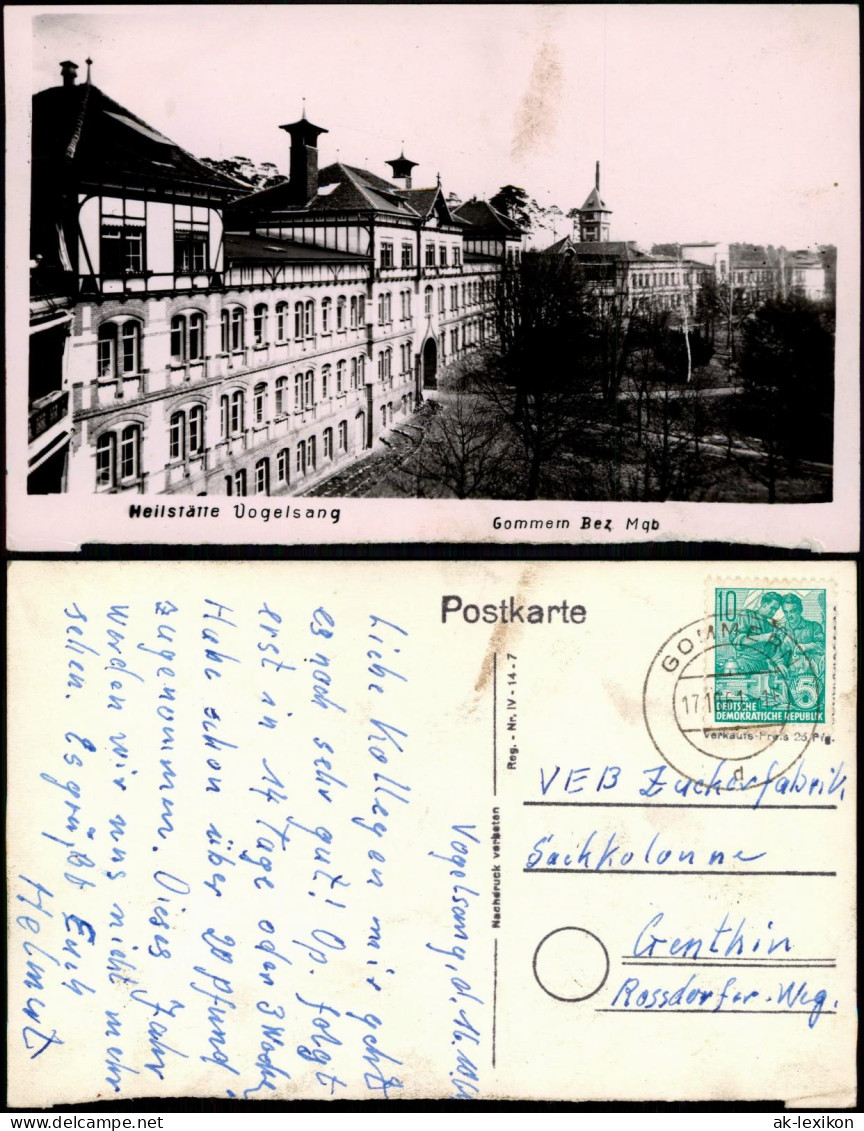 Heilstätte Vogelsang
Gommern Bez. Mgb
Postkarte
Reg.-Nr. IV-14-7
Nachdruck verboten
10
5
DEUTSCHE
DEMOKRATISCHE REPUBLIK
GOMMERN
d
Verkaufs-Preis 25 Pfg.
VEB Zuckerfabrik
Sackkolonne
Genthin
Rossdorfer-Weg.
Vogelsang, d. 16.10.
Liebe Kollegen mir geht
es noch sehr gut! Op. folgt
erst in 14 Tage oder 3 Wochen
Habe schon über 20 pfund
zugenommen. Dieses Jahr
werden wir uns nicht mehr
sehen. Es grüßt Euch
Helmut
ak-lexikon